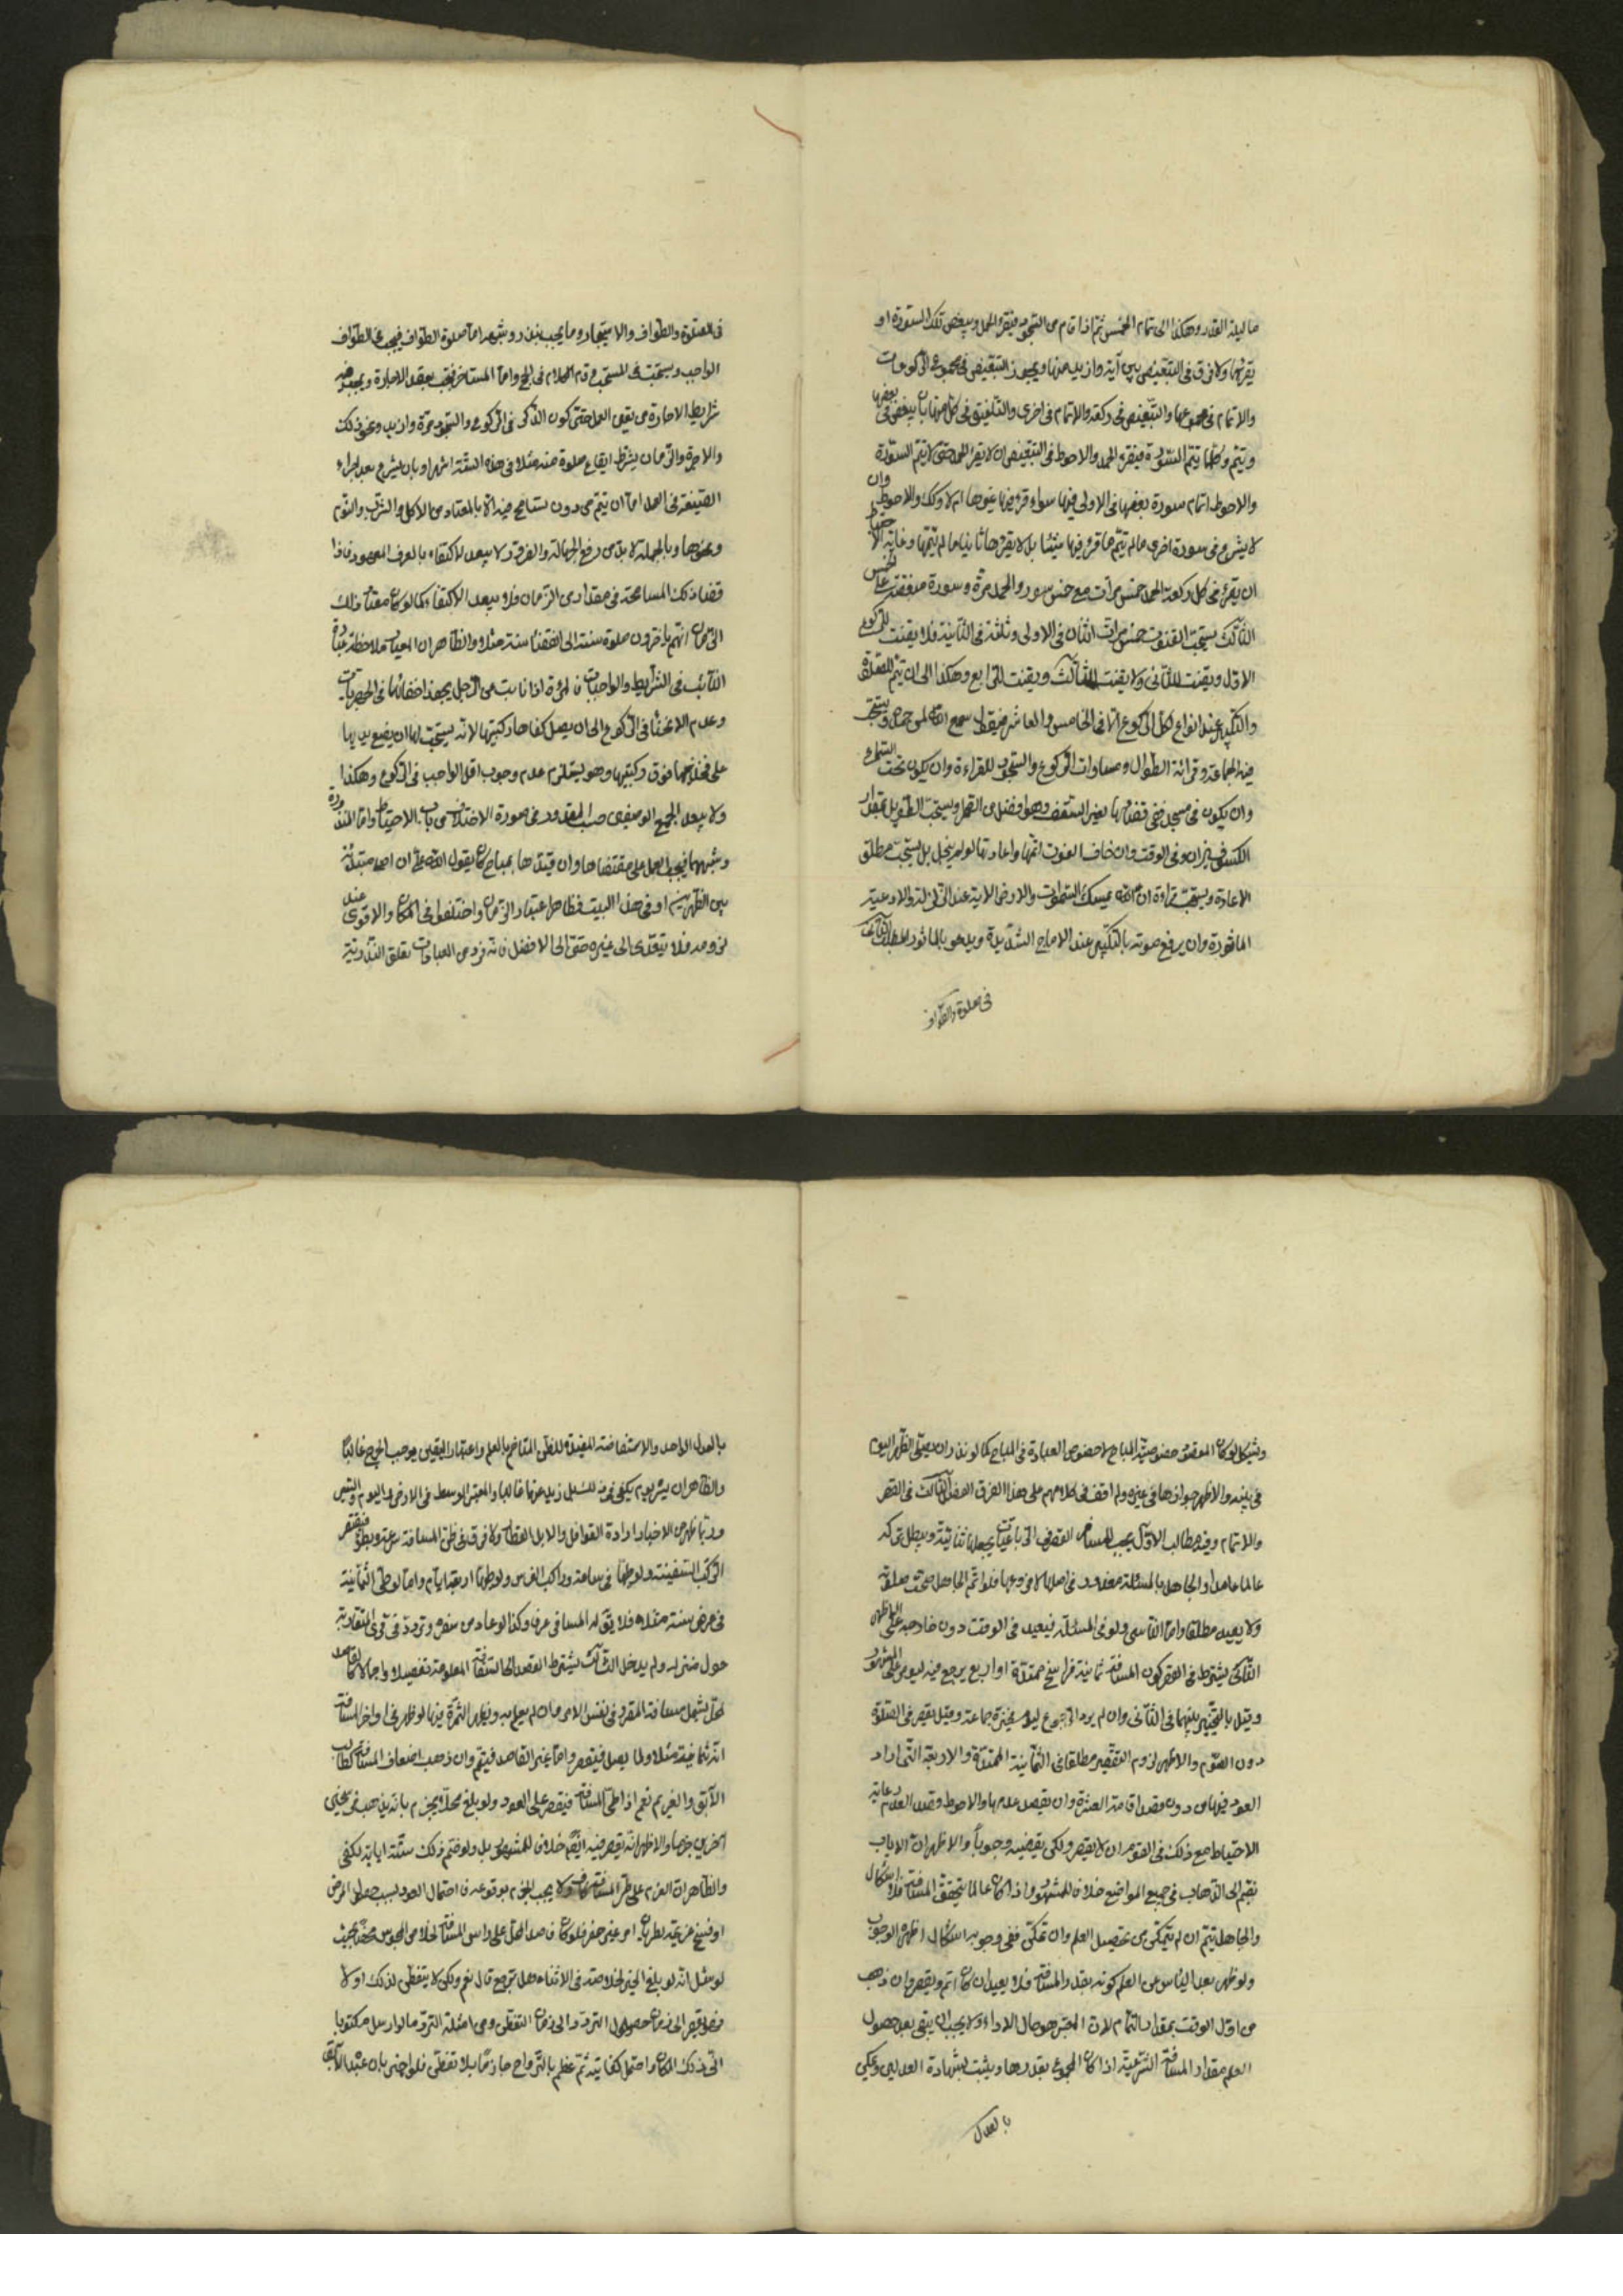 ما ليلة القدر وهكذا الى تمام الخمس ثم اذا قام من السجود فيقرء الحمد وببعض تلك السورة او
يقرئها ولا فرق فى التبعيض بين آية وازيد منها ويجوز التبعيض فى مجموع الركوعات
والاتمام فى مجموعها والتبعيض فى ركعة والاتمام فى اخرى والتلفيق فى كل منهما بان يبعض فى بعضها
ويتم وكلما يتم السورة فيقرء الحمد والاحوط فى التبعيض ان لا يقرء الحمد حتى لا يتم السورة
والاحوط اتمام سورة بعضها فى الاولى فيها سواء قرء فيها غيرها ام لا وكك والاحوط وان
لا يشرع فى سورة اخرى ما لم يتم ما قرء فيها شيئا بل لا يقرئها ثانيا ما لم يتمها وغاية
ان يقرء فى كل ركعة الحمد خمس مرات مع خمس سور والحمد مرة وسورة منقضة على الخمس
الثالث يستحب القنوت خمس مرات اثنان فى الاولى وثلثة فى الثانية فلا يقنت للركوع
الاول ويقنت للثانى ولا يقنت للثالث ويقنت للرابع وهكذا الى ان يتم الصلوة
والتكبير عند انواع لكل الركوع الا فى الخامس والعاشر فيقول سمع الله لمن حمده ويستحب
فيه الجماعة وقرائة الطوال ومساوات الركوع والسجود للقراءة وان يكون تحت السماء
وان يكون فى مسجد فضائها بغير السقف وهو افضل من التحمل ويستحب التطويل بمقدار
الكسوف بزان وفى الوقت وان خاف الفوت اتمها واعادتها لو لم ينجل بل يستحب مطلق
الاعادة ويستحب تلاوة ان الله يمسك السموات والارض الاية عند الزلزلة والادعية
الماثورة وان يرفع صوته بالتكبير عند الارياح الشديدة ويدعو بالماثور المطلب الثالث
فى صلوة الطواف
فى الصلوة والطواف والاستيجار وما يجب بنذر وشبهه اما صلوة الطواف فيجب فى الطواف
الواجب ويستحب فى المستحب وقدم الكلام فى الحج واما المستاجر فيجب بعقد الاجارة ويجب فيه
شرايط الاجارة من يقين العمل حتى كون الذكر فى الركوع والسجود مرة وازيد ونحو ذلك
والاجرة والزمان يشترط ايقاع صلوة سنة مثلا فى هذه الستة اشهر او بان يشرع بعد اجراء
الصيغة فى العمل اما ان يتم من دون تسامح فيه الا بالمعتاد من الاكل والشرب والنوم
ونحوها وبالجملة لا بد من رفع الجهالة والغرر ولا يبعد الاكتفاء بالعرف المعهود فاذا
قضا ذلك المسامحة فى مقدار من الزمان فلا يبعد الاكتفاء كما لو كان معتاد ذلك
الزمان انهم ياخذون صلوة سنة الى انقضاء سنة مثلا والظاهر ان المعيار ملاحظة عبادة
النائب فى الشرايط والواجبات فالمرئة اذا نابت من الرجل يجوز اخفاتها فى الجهريات
وعدم الانحناء فى الركوع الى ان يصل كفاها ركبتيها لانه يستحب لها ان يضع يديها
على فخذيها فوق ركبتيها وهو يستلزم عدم وجوب اقل الواجب فى الركوع وهكذا
ولا يبعد الجمع الوصفين حسب المقدور فى صورة الاختلاف من باب الاحتياط واما المنذورة
وشبهها فيجب العمل على مقتضاها وان قيدها بمباح كان يقول لله على ان اصلى مبتدئة
بين الظهرين او فى هذا البيت فظاهر اعتبار الزمان واختلفوا فى المكان والاقوى عندى
لزومه فلا يتعدى الى غيره حتى الى الافضل فانه فرد من العبادات تعلق النذر به
ويشكل لو كان المقصود خصوصية المباح لا خصوص العبادة فى المباح كما لو نذر ان يصلى الظهر اليوم
فى بيته والاظهر جوازها فى غيره ولم اقف فى كلامهم على هذا الفرق الفصل الثالث فى القصر
والاتمام وفيه مطالب الاول يجب للمسافر القصر فى الرباعيات بجعلها ثنائية ويبطل تركه
عالما عامدا والجاهل بالمسئلة معذور فى اصلها لا فروعها فلو اتم الجاهل صحت صلوته
ولا يعيد مطلقا واما الناسى ولو فى المسئلة فيعيد فى الوقت دون خارجه على الاظهر
الثانى يشترط فى القصر كون المسافة ثمانية فراسخ ممتدة او اربع يرجع فيه ليومه على المشهور
وقيل بالتخيير بينهما فى الثانى وان لم يرد الرجوع ليومه عند جماعة وقيل يقصر فى الصلوة
دون الصوم والاظهر لزوم التقصير مطلقا فى الثمانية الممتدة والاربعة التى اراد
العود فيها من دون قصد اقامة العشرة وان يقصد عدمها والاحوط وقصد العدم غاية
الاحتياط مع ذلك فى الصوم ان لا يقصر ولكن يقضيه وجوبا والاظهر ان الاياب
يضم الى الذهاب فى جميع المواضع خلافا للمشهور واذا كان عالما بتحقق المسافة فلا اشكال
والجاهل يتم ان لم يتمكن من تحصيل العلم وان تمكن ففى وجوبه اشكال اظهره الوجوب
ولو ظهر بعد الياس من العلم كونه بقدر المسافة فلا يعيد ان كان اتم ويقصر وان ذهب
من اول الوقت بمقدار التمام لان المعتبر هو حال الاداء ولا يجب ان يبقى بعد حصول
العلم مقدار المسافة الشرعية اذا كان المجموع بقدرها ويثبت بشهادة العدلين ويكفى
بالعدل
بالعدل الاحد والاستفاضة المفيدة للظن المتاخم بالعلم واعتبار اليقين يوجب الحرج غالبا
والظاهر ان يسير يوم يكفى فيه للسبل زيد عرفا غالبا والمعتبر الوسط فى الارض واليوم والسير
وربما ظهر من الاخبار ارادة القوافل والابل القطار ولا فرق فى طى المسافة سرعة وبطؤ فيقصر
الراكب السفينة ولو طيها فى ساعة وراكب الفرس ولو طيها اربعة ايام واما لو طى الثمانية
فى عرض سنة مثلا فلا يقال له المسافر عرفا وكذا لو عاد من سفر وتردد فى قرى المتقاربة
حول منزله ولم يدخل الثالث يشترط القصد الى المسافة المعلومة تفصيلا واجمالا كقاصد
محل يشمل مسافة المقرر فى نفس الامر وان لم يعلم به ويظهر الثمرة فيما لو ظهر فى اواخر المسافة
انه ثمانية مثلا ولما يصل فيقصر واما غير القاصد فيتم وان ذهب اضعاف المسافة كطالب
الآبق والغريم نعم اذا طى المسافة فيقصر على العود ولو بلغ محلا يجزم بانه يذهب فرسخين
آخرين جزما والاظهر انه يقصر فيه ايضا خلافا للمشهور بل ولو ضم ذلك ستة ايابه لكفى
والظاهر ان العزم على طى المسافة كاف ولا يجب الجزم بوقوعه فاحتمال العود بسبب حصول المرض
او فسخ عزيمة لطريان امر غير مضر فلو كان قاصد المحل على راس المسافة لخلاص المحبوس محتملا بحيث
لو سئل انه لو بلغ الخبر لخلاصته فى الاثناء هل ترجع قال نعم ولكن لا يتفطن لذلك اولا
فهو يقصر الى زمان حصول التردد الى زمان التفطن ومن امثلة التردد ما لو ارسل مكتوبا
الى ذلك المكان واحتمل كفايته ثم عظم بالرواح جازما بلا تفطن فلو اخبر بان عبده الآبق